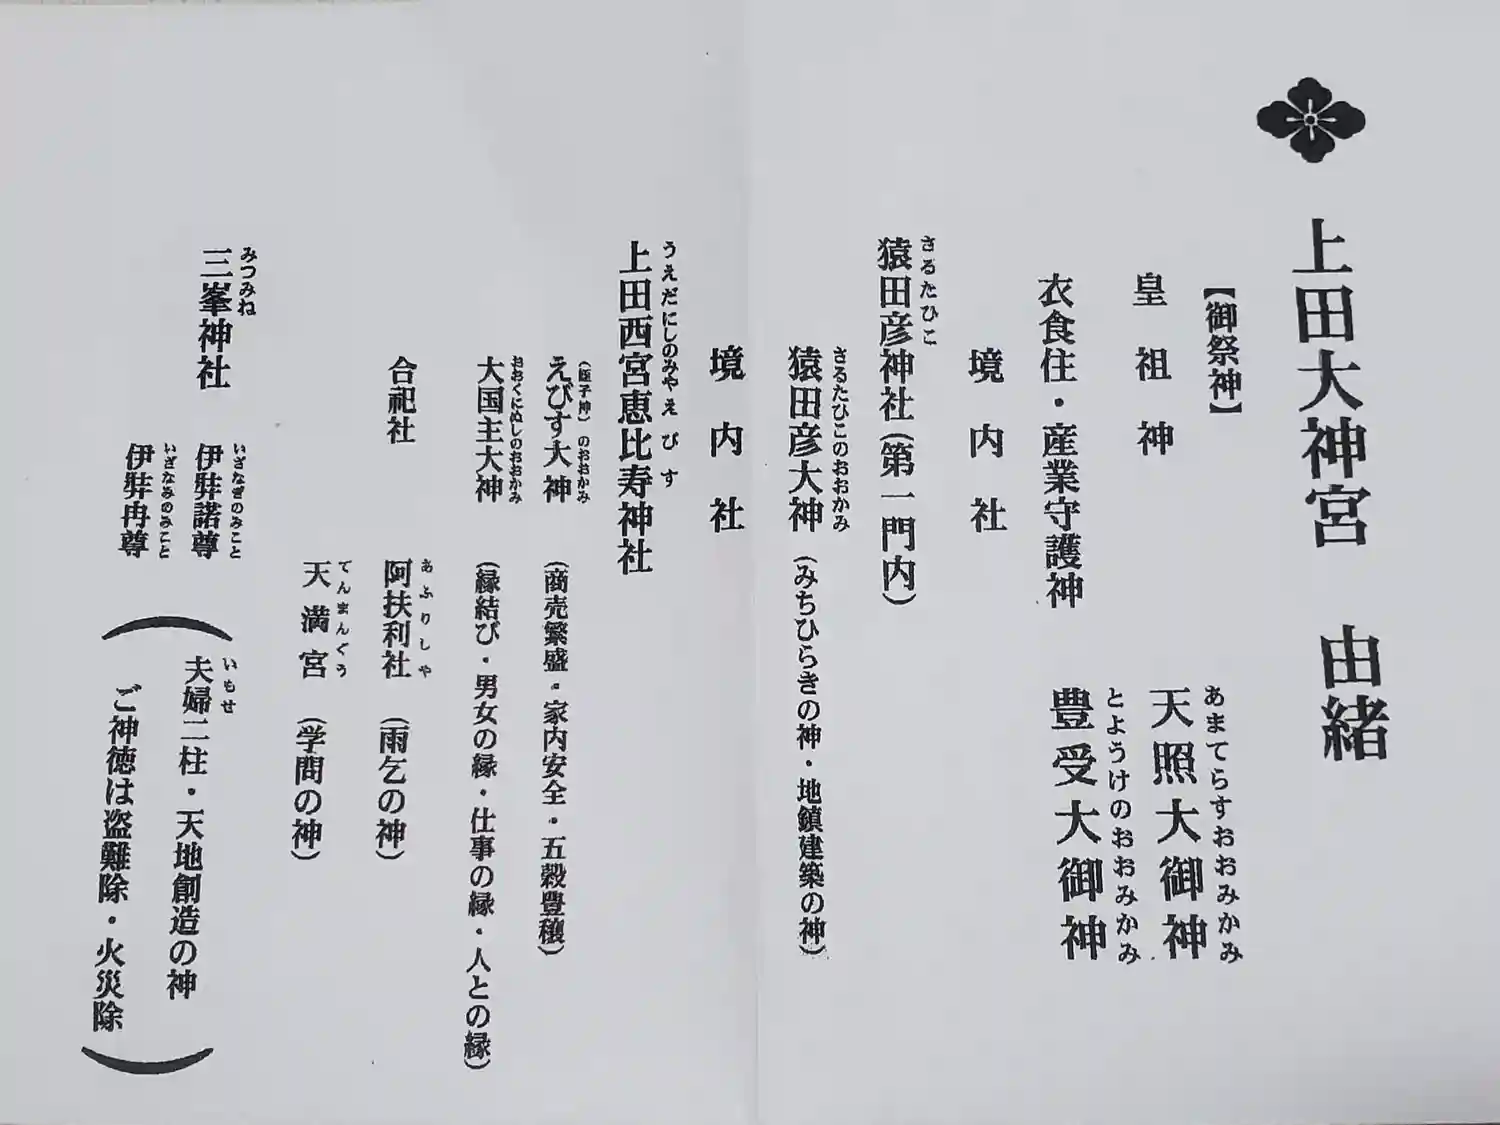 上田大神宮　由緒
【御祭神】
皇祖神　天照大御神
あまてらすおおみかみ
衣食住・産業守護神　豊受大御神
とようけのおおみかみ
境内社
猿田彦神社（第一門内）
さるたひこ
猿田彦大神（みちひらきの神・地鎮建築の神）
さるたひこのおおかみ
境内社
上田西宮恵比寿神社
うえだにしのみやえびす
えびす大神（商売繁盛・家内安全・五穀豊穣）
（蛭子神）のおおかみ
大国主大神（縁結び・男女の縁・仕事の縁・人との縁）
おおくにぬしのおおかみ
合祀社　阿扶利社（雨乞の神）
あふりしや
天満宮（学問の神）
てんまんぐう
三峯神社　伊弉諾尊
みつみね　いざなぎのみこと
伊弉冉尊
いざなみのみこと
（夫婦二柱・天地創造の神
いもせ
ご神徳は盗難除・火災除）